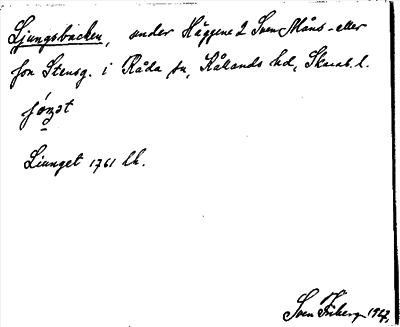 Ljungsbacken, under Häggene 2 Sven Måns- eller
fon Stensg. i Råda sn, Kållands hd, Skarab. l.
Ljunget 1761 lh.
Sven Friberg 1927.